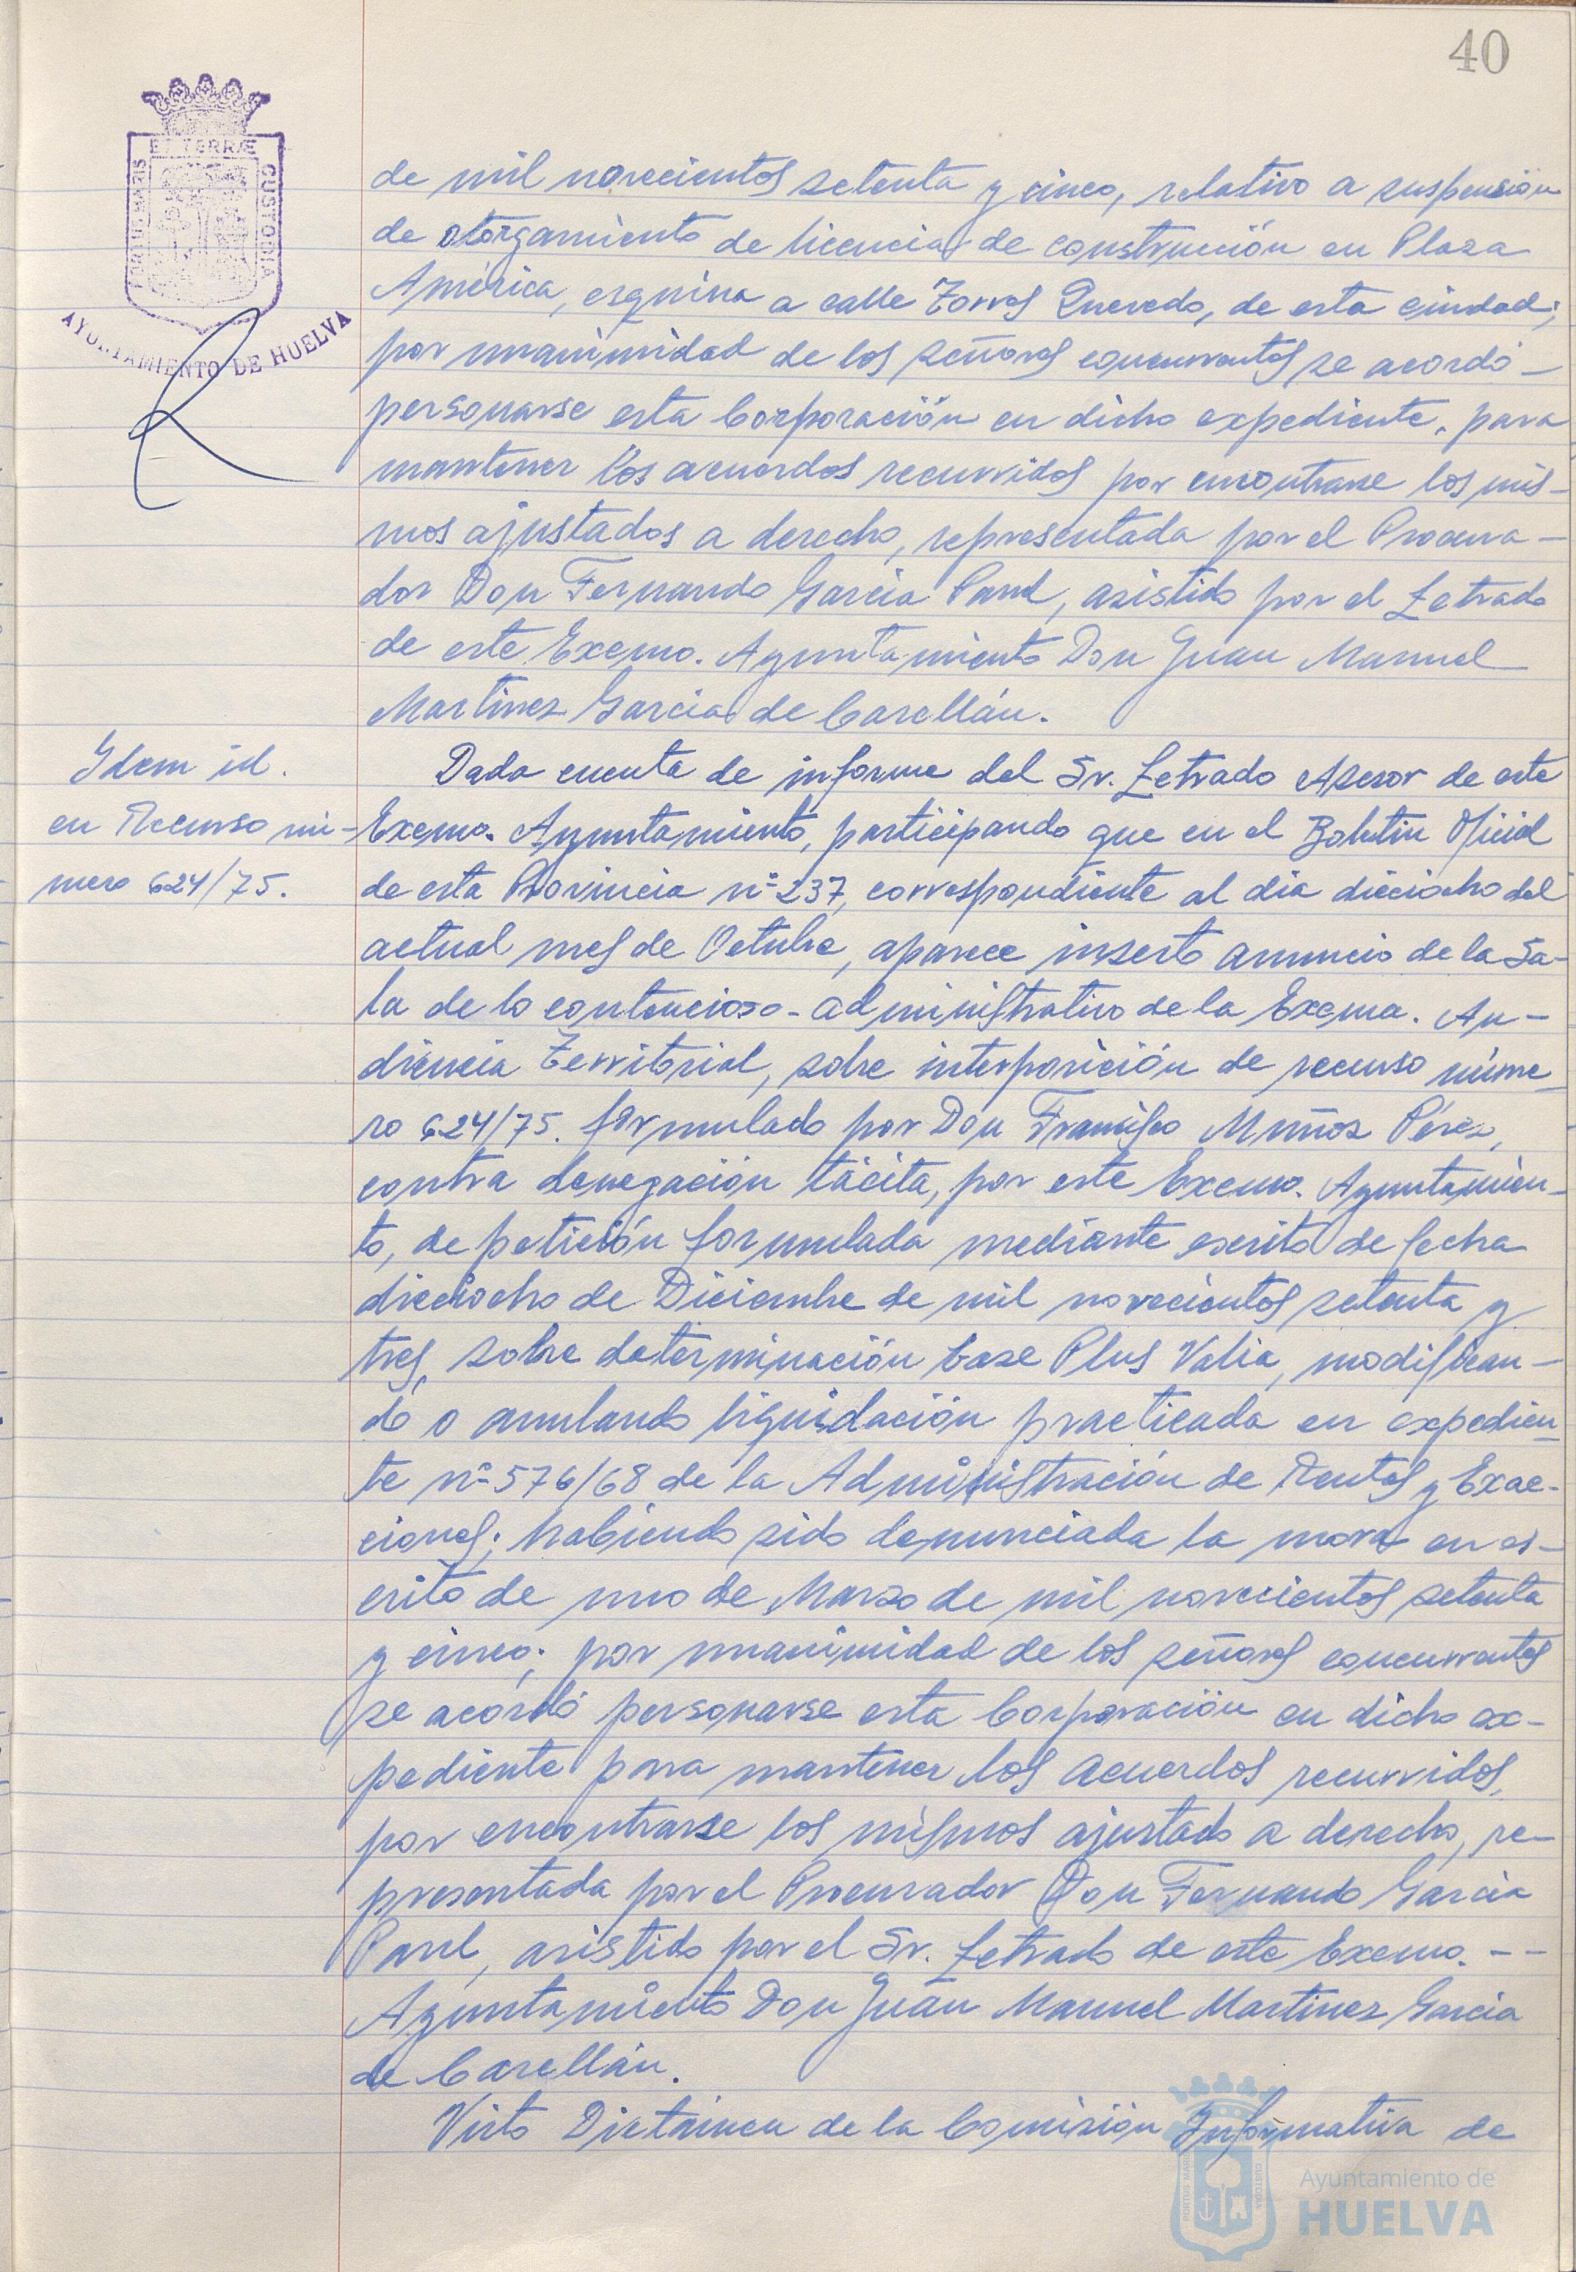 40
ET TERRÆ
PORTUS MARIS
CUSTODIA
AYUNTAMIENTO DE HUELVA
de mil novecientos setenta y cinco, relativo a suspensión
de otorgamiento de licencia de construcción en Plaza
América, esquina a calle Torres Quevedo, de esta ciudad;
por unanimidad de los señores concurrentes se acordó -
personarse esta Corporación en dicho expediente, para
mantener los acuerdos recurridos por encontrarse los mis-
mos ajustados a derecho, representada por el Procura-
dor Don Fernando García Parel, asistido por el Letrado
de este Excmo. Ayuntamiento Don Juan Manuel
Martinez Garcia de Carellán.
Idem id.
en Recurso nú-
mero 624/75.
Dada cuenta de informe del Sr. Letrado Asesor de este
Excmo. Ayuntamiento, participando que en el Boletin Oficial
de esta Provincia nº 237, correspondiente al dia dieciocho del
actual mes de Octubre, aparece inserto anuncio de la Sa-
la de lo contencioso-administrativo de la Excma. Au-
diencia Territorial, sobre interposición de recurso núme
ro 624/75. formulado por Don Francisco Muñoz Pérez,
contra denegación tácita, por este Excmo. Ayuntamien-
to, de petición formulada mediante escrito de fecha
dieciocho de Diciembre de mil novecientos setenta y
tres, sobre determinación base Plus Valia, modifican-
do o anulando liquidación practicada en expedien-
te nº 576/68 de la Administración de Rentas y Exac-
ciones; habiendo sido denunciada la mora en es-
crito de uno de Marzo de mil novecientos setenta
y cinco; por unanimidad de los señores concurrentes
se acordó personarse esta Corporación en dicho ex-
pediente para mantener los acuerdos recurridos,
por encontrarse los mismos ajustado a derecho, re-
presentada por el Procurador Don Fernando Garcia
Parel, asistido por el Sr. Letrado de este Excmo. - -
Ayuntamiento Don Juan Manuel Martinez Garcia
de Carellán.
Visto Dictámen de la Comisión Informativa de
Ayuntamiento de
HUELVA